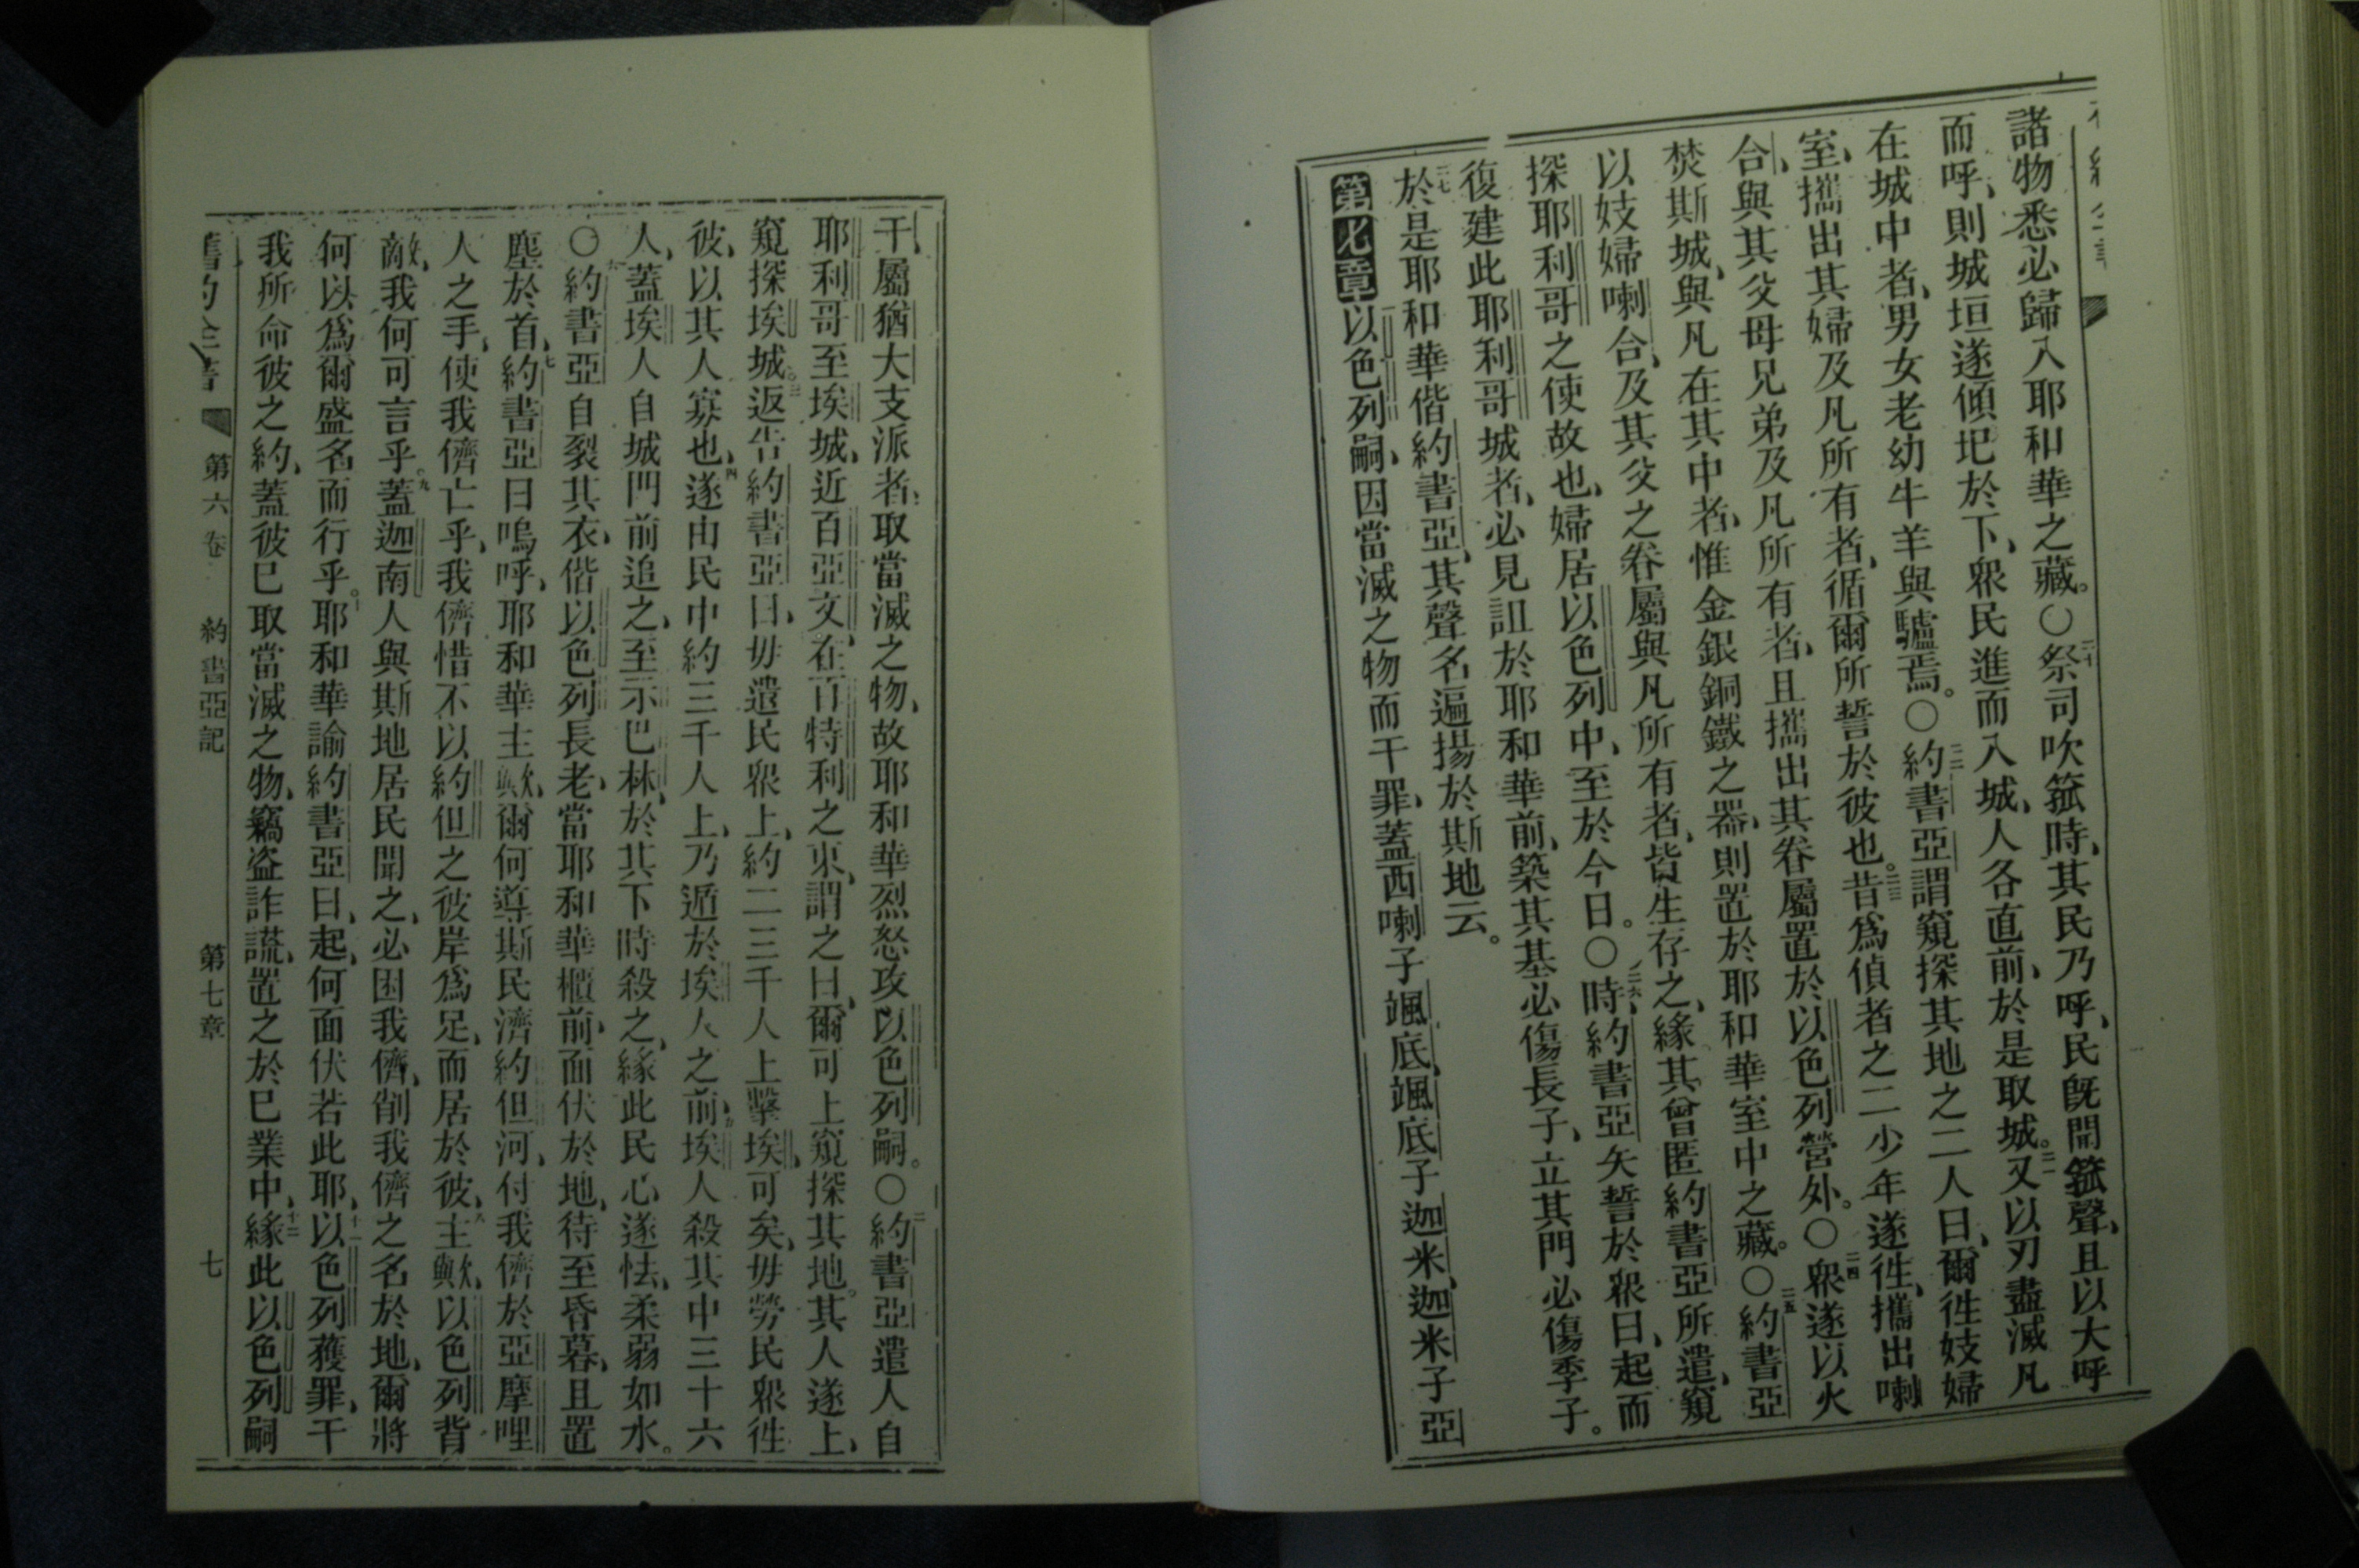 諸物悉必歸入耶和華之藏。○二十祭司吹箛時、其民乃呼、民既聞箛聲、且以大呼
而呼、則城垣遂傾圯於下、眾民進而入城、人各直前、於是取城。二一又以刃盡滅凡
在城中者、男女老幼牛羊與驢焉。○二二約書亞謂窺探其地之二人曰、爾往妓婦
室、攜出其婦及凡所有者、循爾所誓於彼也。二三昔爲偵者之二少年遂往、攜出喇
合、與其父母兄弟及凡所有者、且攜出其眷屬置於以色列營外。○二四眾遂以火
焚斯城、與凡在其中者、惟金銀銅鐵之器、則置於耶和華室中之藏。○二五約書亞
以妓婦喇合、及其父之眷屬與凡所有者、皆生存之、緣其曾匿約書亞所遣、窺
探耶利哥之使故也、婦居以色列中、至於今日。○二六時、約書亞矢誓於眾曰、起而
復建此耶利哥城者、必見詛於耶和華前、築其基必傷長子、立其門必傷季子。
二七於是耶和華偕約書亞、其聲名遍揚於斯地云。
第七章一以色列嗣、因當滅之物而干罪、蓋西喇子颯底、颯底子迦米、迦米子亞
干、屬猶大支派者、取當滅之物、故耶和華烈怒攻以色列嗣。○二約書亞遣人自
耶利哥至埃城、近百亞文、在百特利之東、謂之曰、爾可上窺探其地。其人遂上、
窺探埃城。三返告約書亞曰、毋遣民眾上、約二三千人上擊埃、可矣、毋勞民眾往
彼、以其人寡也、四遂由民中約三千人上、乃遁於埃人之前、五埃人殺其中三十六
人、蓋埃人自城門前追之、至示巴林、於其下時殺之、緣此民心遂怯、柔弱如水。
○六約書亞自裂其衣、偕以色列長老、當耶和華櫃前、面伏於地、待至昏暮、且置
塵於首、七約書亞曰嗚呼、耶和華主歟、爾何導斯民濟約但河、付我儕於亞摩哩
人之手、使我儕亡乎、我儕惜不以約但之彼岸爲足、而居於彼、八主歟、以色列背
敵、我何可言乎。九蓋迦南人與斯地居民聞之、必困我儕、削我儕之名於地、爾將
何以爲爾盛名而行乎。十耶和華諭約書亞曰、起、何面伏若此耶、十一以色列獲罪、干
我所命彼之約、蓋彼已取當滅之物、竊盜詐謊、置之於己業中、十二緣此以色列嗣
舊約全書 第六卷 約書亞記 第七章 七